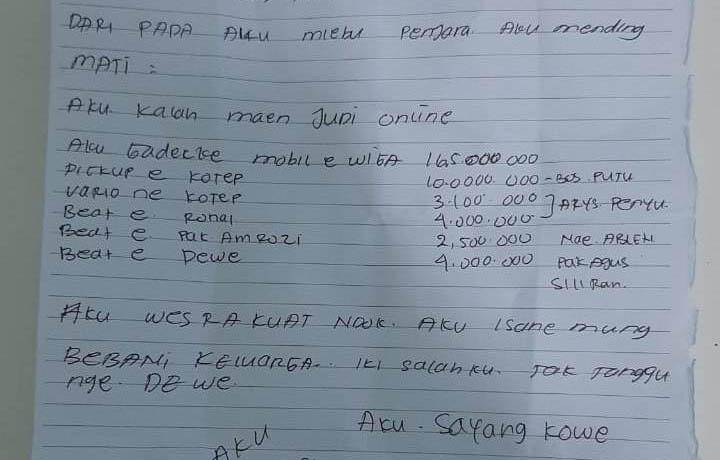 DARI PADA AKU mlebu Penjara. AKU mending
MATI :
AKU. Kalah maen Judi online
AKU Gadekke mobil e WIGA 165.000.000
PICKUP e KOTEP 10.0000.000 - BOS. PUTU
VARIO ne KOTEP 3.100.000 ] ARYS. Penyu.
Beat e Ronal 4.000.000
Beat e Pak AmRozi 2,500.000 Mae.
Beat e Dewe 4.000.000 Pak Agus
SILIRan.
AKU WES RA KUAT NDOK. AKU ISane mung
BEBANI KELUARGA.. IKI salah KU. TaK Tanggu
nge. DEWE
AKU. Sayang Kowe
AKU